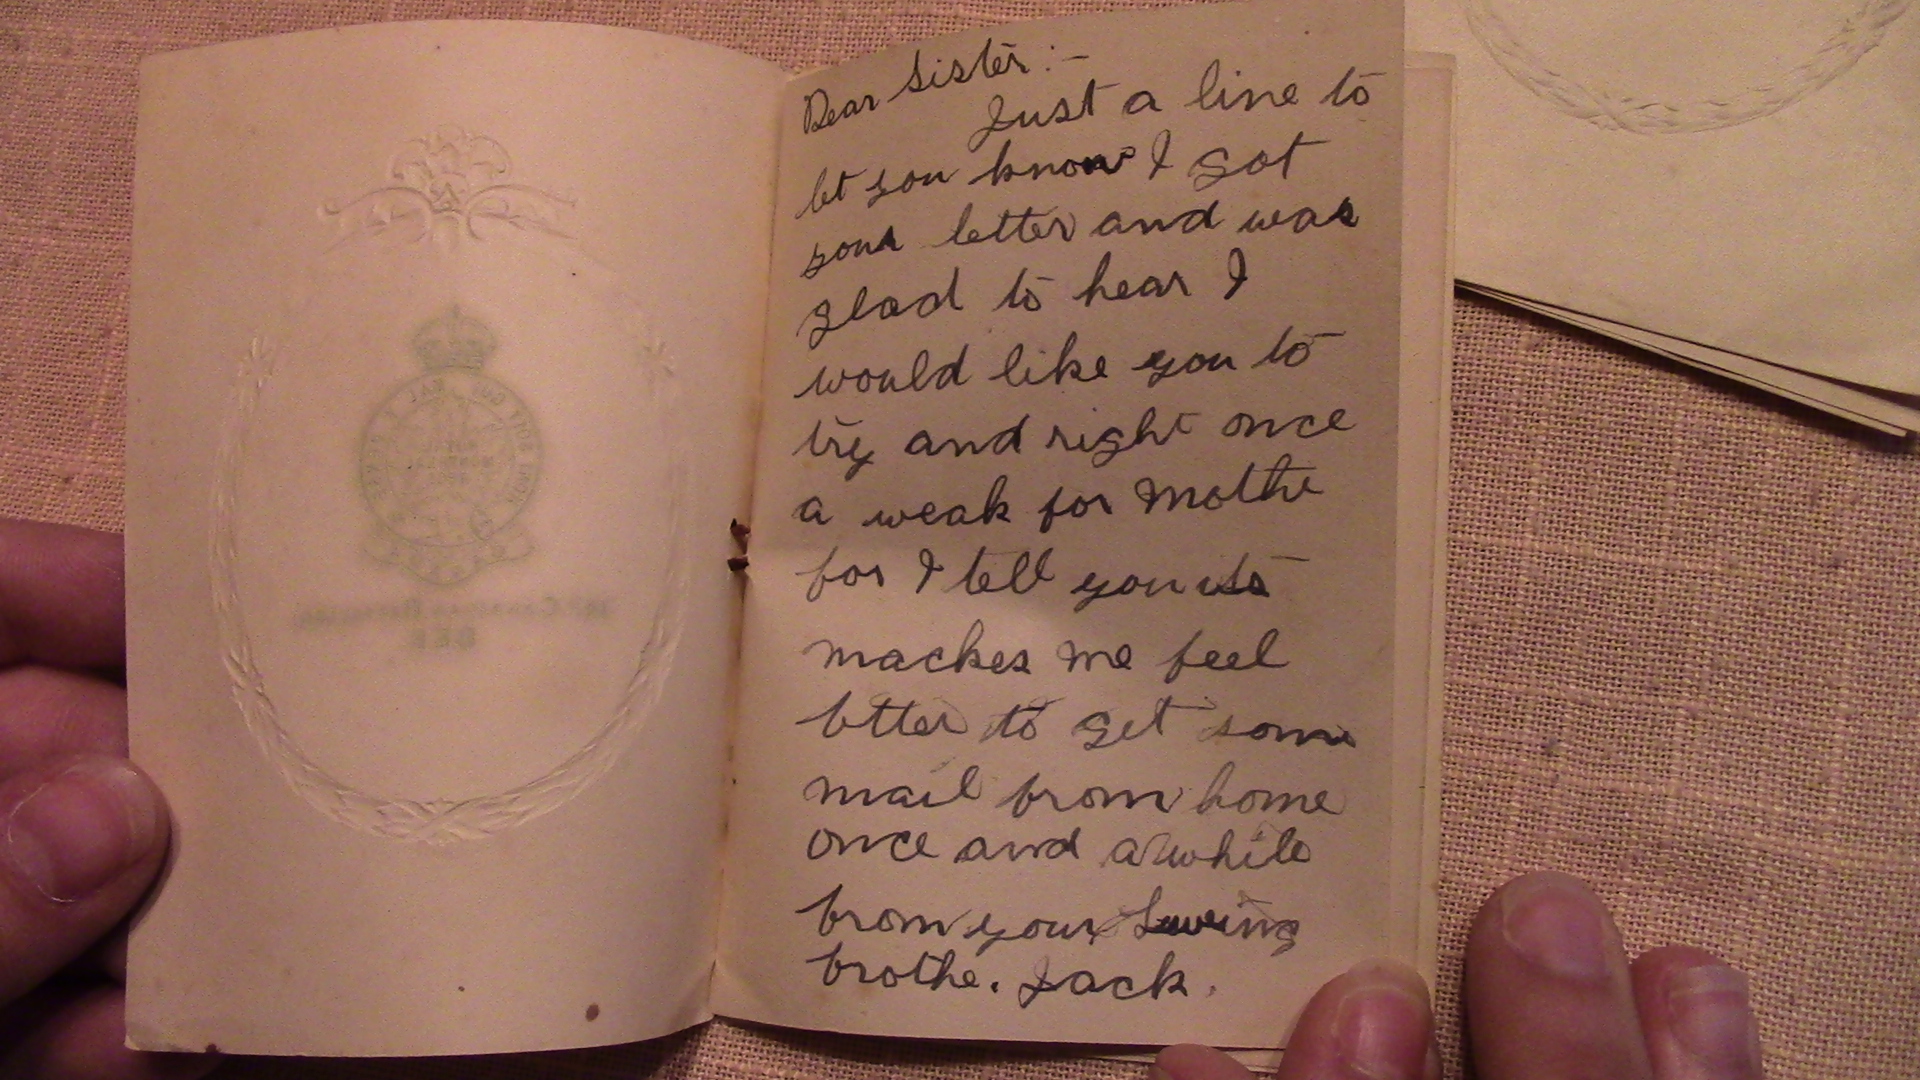 Dear Sister:-
Just a line to
let you know I got
your letter and was
glad to hear I
would like you to
try and right once
a weak for Mothe
for I tell you its
mackes me feel
better to get some
mail from home
once and a while
from your
brothe. Jack.